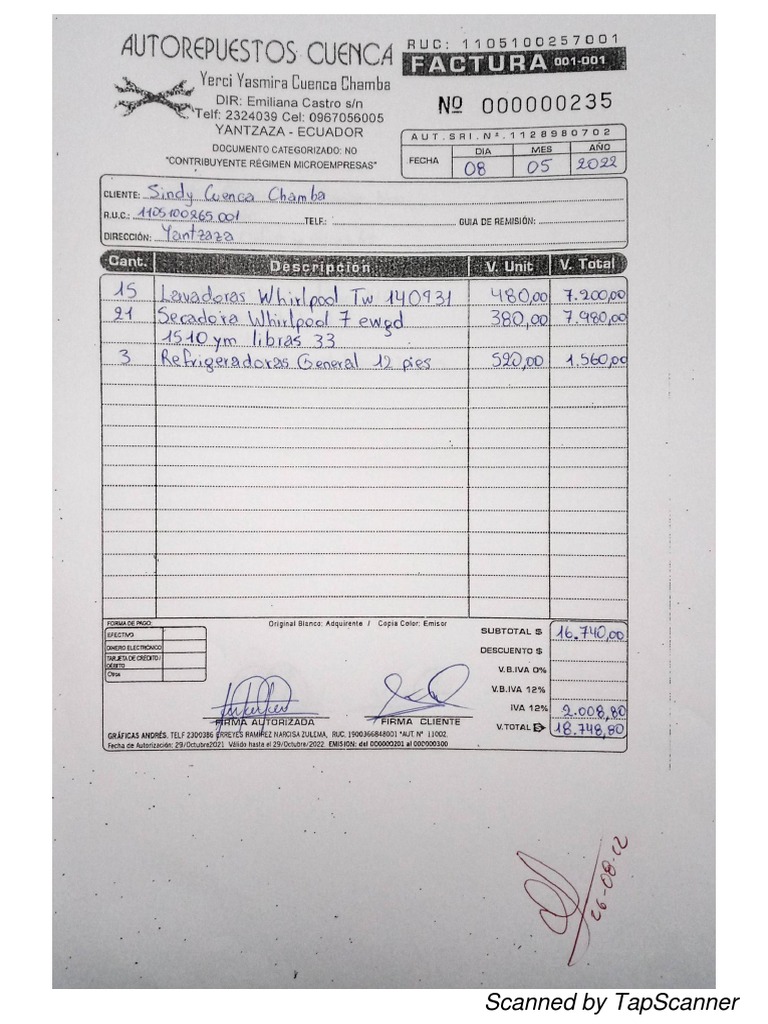 AUTOREPUESTOS CUENCA
Yerci Yasmira Cuenca Chamba
DIR: Emiliana Castro s/n
Telf: 2324039 Cel: 0967056005
YANTZAZA - ECUADOR
DOCUMENTO CATEGORIZADO: NO
"CONTRIBUYENTE RÉGIMEN MICROEMPRESAS"
RUC: 1105100257001
FACTURA 001-001
Nº 000000235
AUT.SRI.Nº.1128980702
FECHA DIA MES AÑO
08 05 2022
CLIENTE: Sindy Cuenca Chamba
R.U.C.: 1105100265001 TELF.: GUIA DE REMISIÓN:
DIRECCIÓN: Yantzaza
Cant. Descripción V. Unit V. Total
15 Lavadoras Whirlpool Tw 140931 480,00 7.200,00
21 Secadora Whirlpool 7 ewgd 380,00 7.980,00
1510 ym libras 33
3 Refrigeradoras General 12 pies 520,00 1.560,00
FORMA DE PAGO:
EFECTIVO
DINERO ELECTRÓNICO
TARJETA DE CRÉDITO / DÉBITO
Otros
Original Blanco: Adquirente / Copia Color: Emisor
SUBTOTAL $ 16.740,00
DESCUENTO $
V.B.IVA 0%
V.B.IVA 12%
IVA 12% 2.008,80
V.TOTAL 18.748,80
FIRMA AUTORIZADA FIRMA CLIENTE
GRÁFICAS ANDRÉS. TELF 2300386 ERREYES RAMÍREZ NARCISA ZULEMA, RUC. 1900366848001 *AUT. Nº 11002.
Fecha de Autorización: 29/Octubre2021 Válido hasta el 29/Octubre/2022. EMISION: del 000000201 al 000000300
26-08-22
Scanned by TapScanner